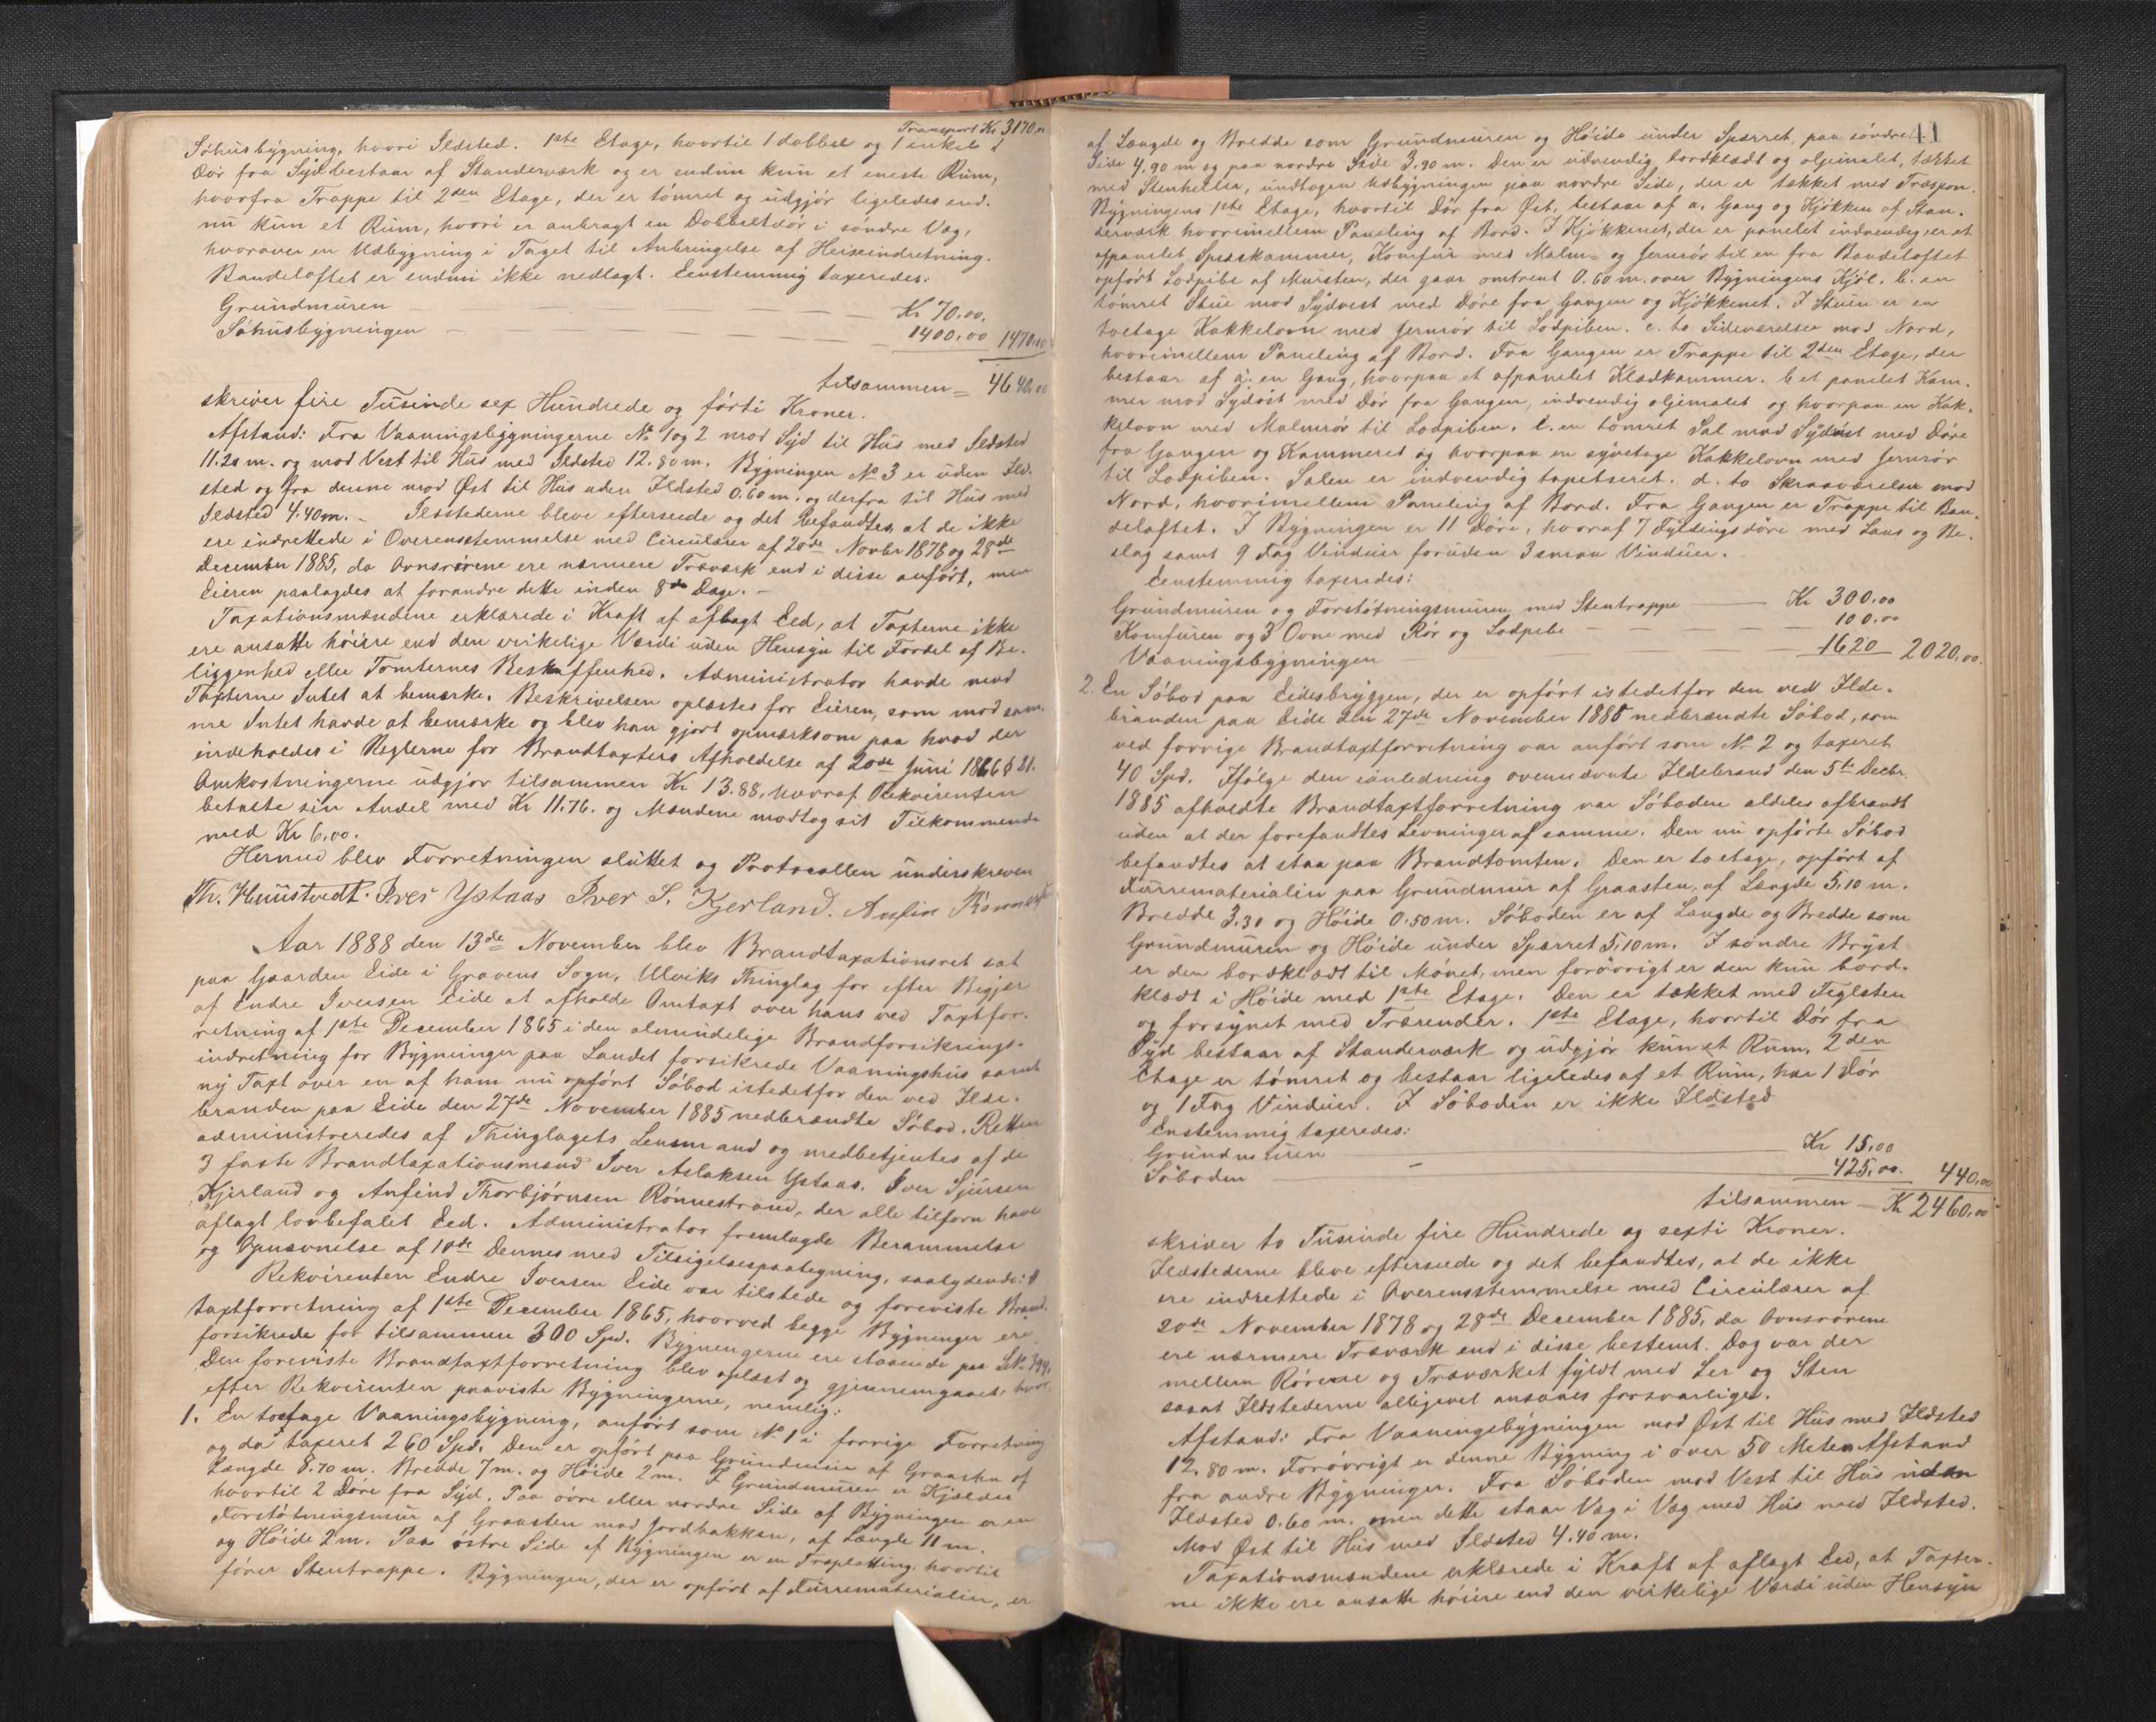 Transport Kr 3170.
Söhusbygning, hvori Ildsted. 1ste Etage, hvortil 1 dobbel og 1 enkel
Dör fra Syd bestaar af Standerværk og er endnu kun et eneste Rum,
hvorfra Trappe til 2den Etage, der er tömret og udgjör ligeledes end-
nu kun et Rum, hvori er anbragt en Dobbeltdör i söndre Væg,
hvorover en Udbygning i Taget til Anbringelse af Heiseindretning.
Bandeloftet er endnu ikke nedlagt. Eenstemmig taxeredes:
Grundmuren Kr 70.00.
Söhusbygningen 1400.00 1470.00
tilsammen = 4640.00
skriver fire Tusinde sex Hundrede og förti Kroner.
Afstand: Fra Vaaningsbygningerne No 1 og 2 mod Syd til Hus med Ildsted
11.20 m. og mod Vest til Hus med Ildsted 12.80 m. Bygningen No 3 er uden Ild-
sted og fra denne mod Öst til Hus uden Ildsted 0.60 m. og derfra til Hus med
Ildsted 4.40 m. – Ildstederne bleve efterseede og det befandtes, at de ikke
ere indrettede i Overensstemmelse med Circulærer af 20de Novbr 1878 og 28de
December 1885, da Ovnsrörene ere nærmere Træværk end i disse anfört, men
Eieren paalagdes at forandre dette inden 8de Dage. –
Taxationsmændene erklærede i Kraft af aflagt Eed, at Taxterne ikke
ere ansatte höiere end den virkelige Værdi uden Hensyn til Fordel af Be-
liggenhed eller Tomternes Beskaffenhed. Administrator havde mod
Taxterne Intet at bemærke. Beskrivelsen oplæstes for Eieren, som mod sam-
me Intet havde at bemærke og blev han gjort opmærksom paa hvad der
indeholdes i Reglerne for Brandtaxters Afholdelse af 20de Juni 1866 § 21.
Omkostningerne udgjör tilsammen Kr 13.88, hvoraf Rekvirenten
betalte sin Andel med Kr 11.76. og Mændene modtog sit Tilkommende
med Kr 6.00.
Hermed blev Forretningen sluttet og Protocollen underskreven
Th. Huustvedt. Iver Ystaas Iver S. Kjerland. Anfin
Aar 1888 den 13de November blev Brandtaxationsret sat
paa Gaarden Eide i Gravens Sogn, Ulviks Thinglag for efter Begjær
af Endre Iversen Eide at afholde Omtaxt over hans ved Taxtfor-
retning af 1ste December 1865 i den almindelige Brandforsikrings-
indretning for Bygninger paa Landet forsikrede Vaaningshus samt
ny Taxt over en af ham nu opfört Söbod istedetfor den ved Ilde-
branden paa Eide den 27de November 1885 nedbrændte Söbod. Retten
administreredes af Thinglagets Lensmand og medbetjentes af de
3 faste Brandtaxationsmænd Iver Aslaksen Ystaas. Iver Sjursen
Kjerland og Anfind Thorbjörnsen Rönnestrand, der alle tilforn have
aflagt lovbefalet Eed. Administrator fremlagde Berammelse
og Opnævnelse af 10de Dennes med Tilsigelsespaategning, saalydende:
Rekvirenten Endre Iversen Eide var tilstede og foreviste Brand-
taxtforretning af 1ste December 1865, hvorved begge Bygninger ere
forsikrede for tilsammen 300 Spd. Bygningerne ere staaende paa
Den foreviste Brandtaxtforretning blev oplæst og gjennemgaaet, hvor-
efter Rekvirenten paaviste Bygningerne, nemlig:
1. En toetage Vaaningsbygning, anfört som No 1 i forrige Forretning
og da taxeret 260 Spd. Den er opfört paa Grundmur af Graasten af
Længde 8.70 m. Bredde 7 m. og Höide 2 m. I Grundmuren er Kjælder
hvortil 2 Döre fra Syd. Paa övre eller nordre Side af Bygningen er en
Forstötningsmur af Graasten mod Jordbakken, af Længde 11 m.
og Höide 2 m. Paa östre Side af Bygningen er en hvortil
förer Stentrappe. Bygningen, der er opfört af Furrematerialier, er
41
af Længde og Bredde som Grundmuren og Höide under Sperret, paa söndre
Side 4.90 m og paa nordre Side 3.90 m. Den er udvendig bordklædt og oljemalet, tækket
med Stenheller, undtagen Udbygningen paa nordre Side, der er tækket med Træspon.
Bygningens 1ste Etage, hvortil Dör fra Öst, bestaar af a. Gang og Kjökken af Stan-
derværk hvorimellem Paneling af Bord. I Kjökkenet, der er panelet indvendig, er et
afpanelet Spisekammer, Komfur med Malm- og Jernrör til en fra Bandeloftet
opfört Lodpibe af Mursten, der gaar omtrent 0.60 m. over Bygningens Kjöl. b. en
tömret Stue mod Sydvest med Döre fra Gangen og Kjökkenet. I Stuen er en
toetage Kakkelovn med Jernrör til Lodpiben. c. to Sideværelser mod Nord,
hvorimellem Paneling af Bord. Fra Gangen er Trappe til 2den Etage, der
bestaar af a. en Gang, hvorpaa et afpanelet Klædkammer. b et panelet Kam-
mer mod Sydost med Dör fra Gangen, indvendig oljemalet og hvorpaa en Kak-
kelovn med Malmrör til Lodpiben. c. en tömret Sal mod Sydvest med Döre
fra Gangen og Kammeret og hvorpaa en syvetage Kakkelovn med Jernrör
til Lodpiben. Salen er indvendig tapetseret. d. to Skraaværelser mod
Nord, hvorimellem Paneling af Bord. Fra Gangen er Trappe til Ban-
deloftet. I Bygningen er 11 Döre, hvoraf 7 Fyldingsdöre med Laas og Be-
slag samt 9 Fag Vinduer foruden 3 smaa Vinduer.
Eenstemmig taxeredes:
Grundmuren og Forstötningsmuren med Stentrappe Kr 300.00
Komfuren og 3 Ovne med Rör og Lodpibe 100.00
Vaaningsbygningen 1620 2020.00.
2. En Söbod paa Eidesbryggen, der er opfört istedetfor den ved Ilde-
branden paa Eide den 27de November 1885 nedbrændte Söbod, som
ved forrige Brandtaxtforretning var anfört som No 2 og taxeret
40 Spd. Ifölge den i anledning ovennævnte Ildebrand den 5te Decbr.
1885 afholdte Brandtaxtforretning var Söboden aldeles afbrændt
uden at der forefandtes Levninger af samme. Den nu opförte Söbod
befandtes at staa paa Brandtomten. Den er toetage, opfört af
Furrematerialier paa Grundmur af Graasten, af Længde 5.10 m.
Bredde 3.30 og Höide 0.50 m. Söboden er af Længde og Bredde som
Grundmuren og Höide under Sperret 5.10 m. I söndre Bryst
er den bordklædt til Mönet, men forövrigt er den kun bord-
klædt i Höide med 1ste Etage. Den er tækket med Teglsten
og forsynet med Trærender. 1ste Etage, hvortil Dör fra
Syd bestaar af Standerværk og udgjör kun et Rum. 2den
Etage er tömret og bestaar ligeledes af et Rum, har 1 Dör
og 1 Fag Vinduer. I Söboden er ikke Ildsted
Enstemmig taxeredes:
Grundmuren Kr 15.00
Söboden 425.00. 440.00
tilsammen – Kr 2460.00
skriver to Tusinde fire Hundrede og sexti Kroner.
Ildstederne bleve efterseede og det befandtes, at de ikke
ere indrettede i Overensstemmelse med Circulærer af
20de November 1878 og 28de December 1885, da Ovnsrörene
ere nærmere Træværk end i disse bestemt. Dog var der
mellem Rörene og Træværket fyldt med Ler og Sten
saaat Ildstederne alligevel ansaaes forsvarlige.
Afstand: Fra Vaaningsbygningen mod Öst til Hus med Ildsted
12.80 m. Forövrigt er denne Bygning i over 50 Meters Afstand
fra andre Bygninger. Fra Söboden mod Vest til Hus uden
Ildsted 0.60 m. men dette staar Væg i Væg med Hus med Ildsted.
Mod Öst til Hus med Ildsted 4.40 m.
Taxationsmændene erklærede i Kraft af aflagt Eed, at Taxter-
ne ikke ere ansatte höiere end den virkelige Værdi uden Hensyn